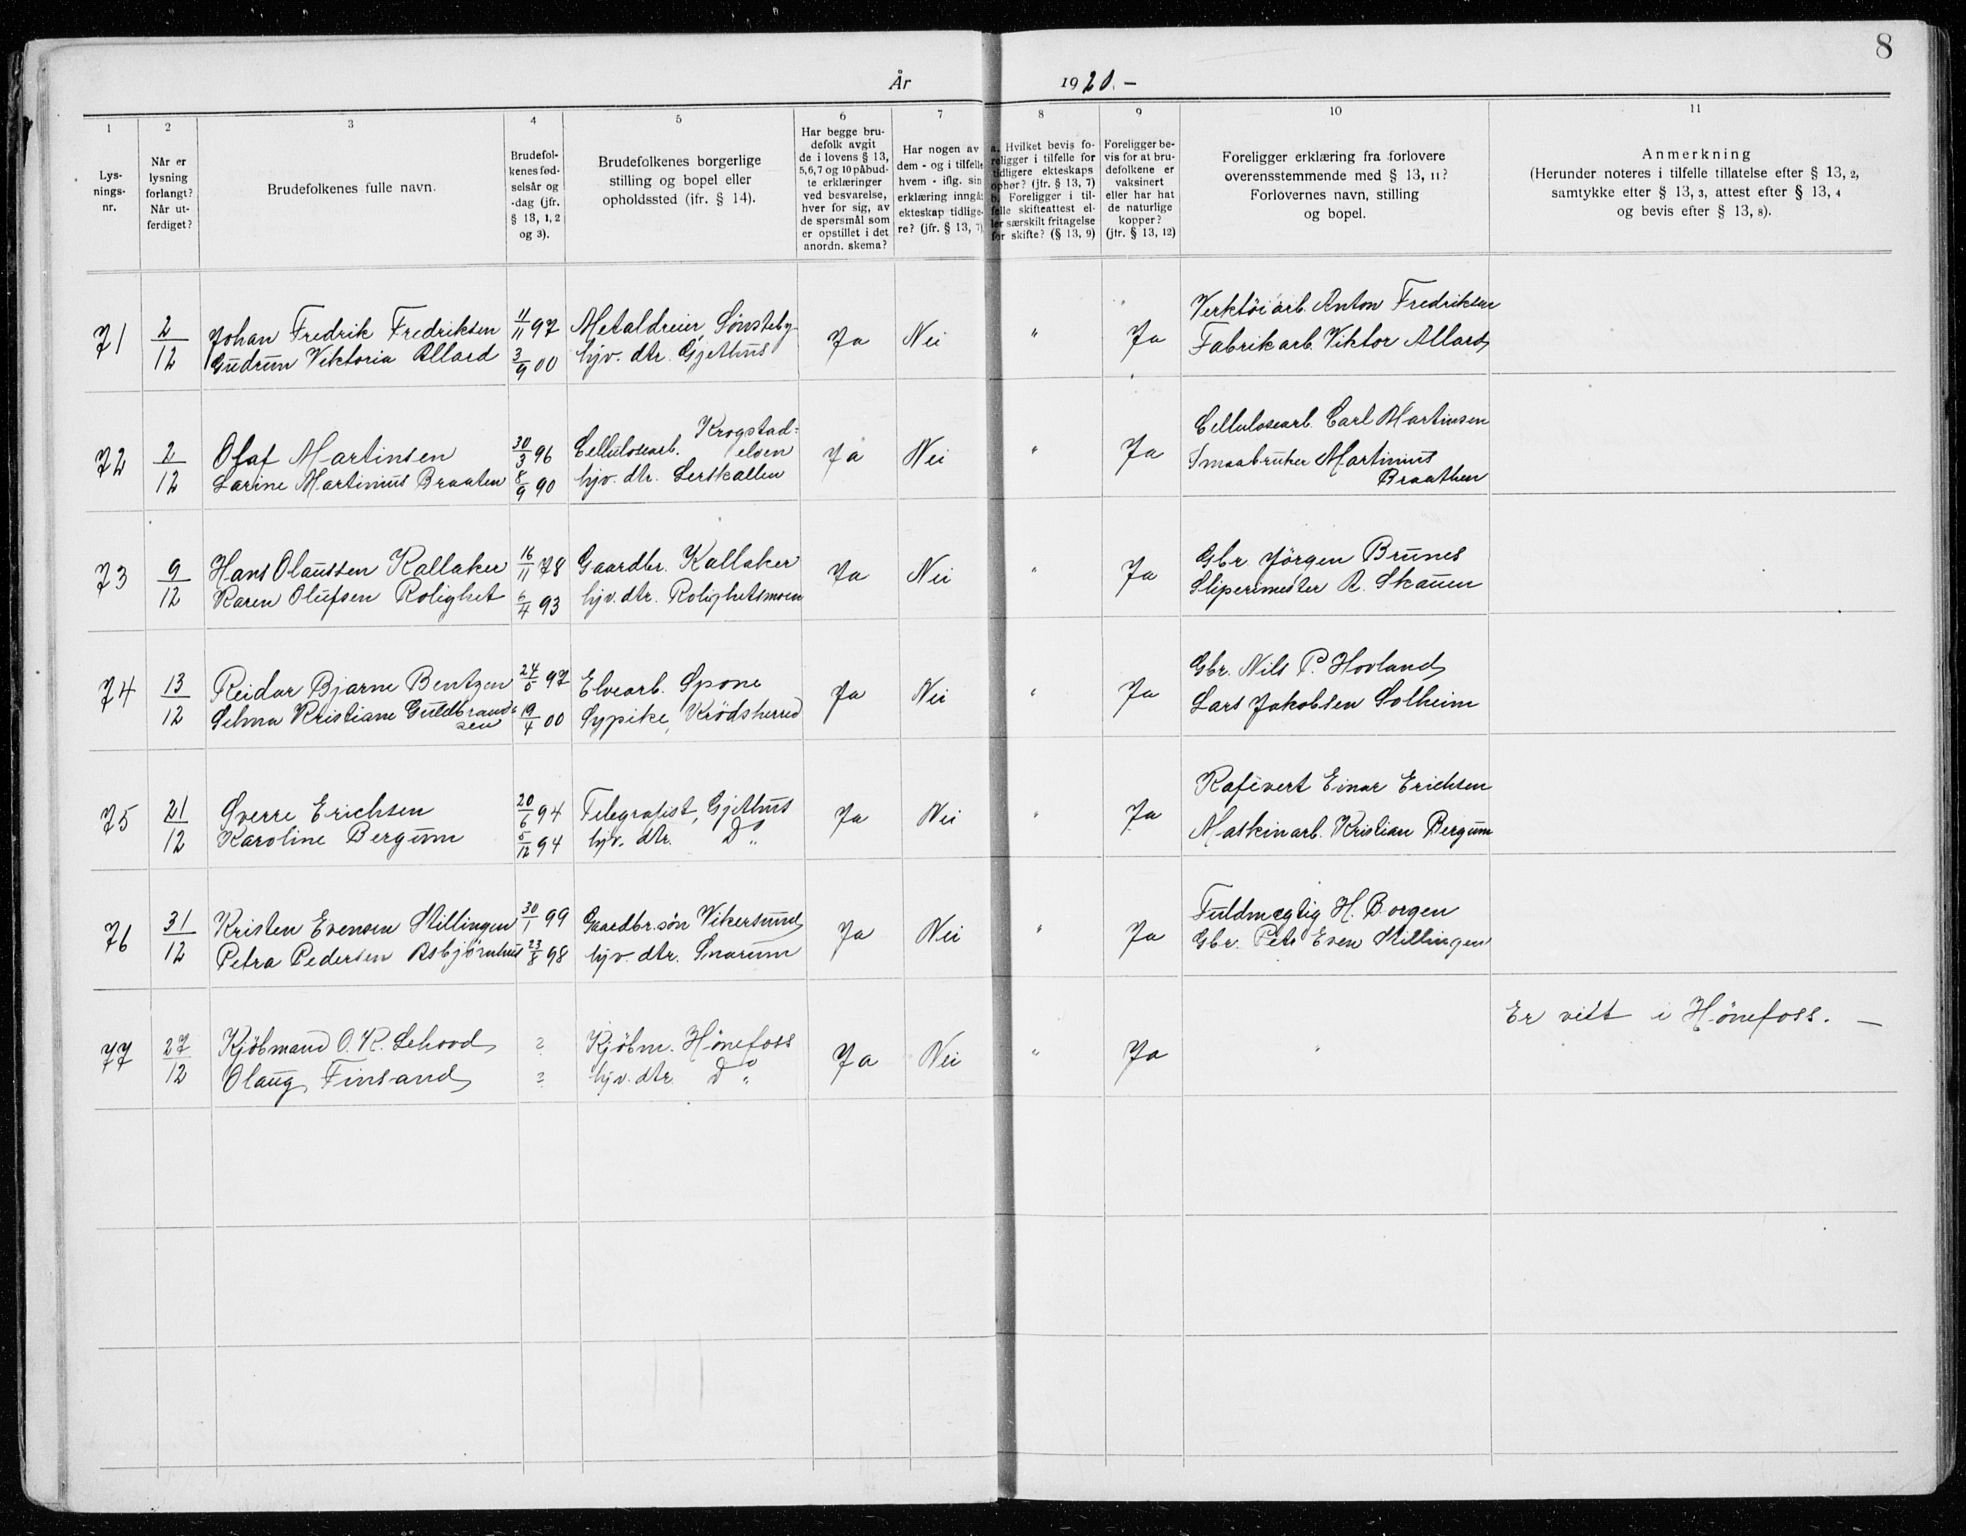 8
År 1920.-
1
2
3
4
5
6
7
8
9
10
11
Lys-
nings-
nr.
Når er
lysning
forlangt?
Når ut-
ferdiget?
Brudefolkenes fulle navn.
Brudefol-
kenes fød-
selsår og
-dag (jfr.
§ 13, 1, 2
og 3).
Brudefolkenes borgerlige
stilling og bopel eller
opholdssted (jfr. § 14).
Har begge bru-
defolk avgit
de i lovens § 13,
5, 6, 7 og 10 påbud-
te erklæringer
ved besvarelse,
hver for sig, av
de spørsmål som
er opstillet i det
anordn. skema?
Har nogen av
dem - og i tilfelle
hvem - iflg. sin
erklæring inngå
ekteskap tidlige-
re? (jfr. § 13, 7)
a. Hvilket bevis fo-
religger i tilfelle for
tidligere ekteskaps
ophør? (jfr. § 13, 7)
b. Foreligger i til-
felle skifteattest el-
ler særskilt fritagelse
for skifte? (§ 13, 9)
Foreligger be-
vis for at bru-
defolkene er
vaksinert
eller har hat
de naturlige
kopper?
(jfr. § 13, 12)
Foreligger erklæring fra forlovere
overensstemmende med § 13, 11?
Forlovernes navn, stilling
og bopel.
Anmerkning
(Herunder noteres i tilfelle tillatelse efter § 13, 2,
samtykke efter § 13, 3, attest efter § 13, 4
og bevis efter § 13, 8).
71 2/12 Johan Fredrik Fredriksen 11/11 97 Metaldreier, Sønsteby Ja Nei " Ja Verktöiarb. Anton Fredriksen
Gudrun Viktoria Allard 3/9 00 hjv. dtr. Gjethus Fabrikarb. Viktor Allard
72 2/12 Olaf Martinsen 30/3 96 Cellulosearb. Krogstad=
elven Ja Nei " Ja Cellulosearb. Carl Martinsen
Larine Martinius Braaten 8/9 90 hjv. dtr. Lerskallen Smaabruker Martinius
Braathen
73 9/12 Hans Olaussen Kallaker 16/11 78 Gaardbr. Kallaker Ja Nei " Ja Gbr. Jörgen Brunes
Karen Olufsen Rolighet 6/4 93 hjv. dtr. Rolighetsmoen Sliperimester R. Skauen
74 13/12 Reidar Bjarne Bentzen 24/5 97 Elvearb. Spone Ja Nei " Ja Gbr. Nils P. Hovland
Selma Kristiane Guldbrand=
sen 19/4 00 Sypike, Krödsherred Lars Jakobsen Solheim
75 21/12 Sverre Erichsen 20/6 94 Telegrafist, Gjethus Ja Nei " Ja Kafévert Einar Erichsen
Karoline Bergum 5/12 94 hjv. dtr. Do " Maskinarb. Kristian Bergum
76 31/12 Kristen Evensen Stillingen 30/1 99 Gaardbr.søn Vikersund Ja Nei " Ja Fuldmægtig H. Borgen
Petra Pedersen Asbjørnhus 23/8 98 hjv. dtr. Snarum Gbr. Even Stillingen
77 27/12 Kjöbmand O. K. Lehovd ? Kjöbm. Hønefoss Ja Nei " Ja " Er vitt i Hønefoss. —
Olaug Finsand ? hjv. dtr. Do "